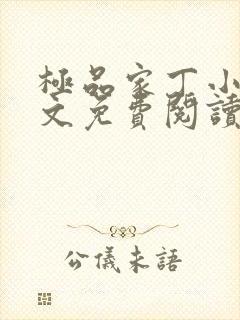 極品家丁小
文免費閱讀
公儀未語